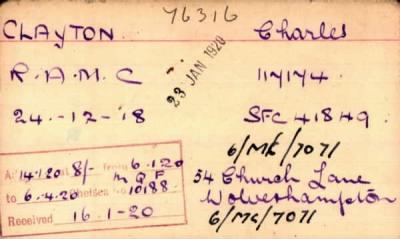 76316
CLAYTON. Charles
23 JAN 1920
R.A.M.C 117174.
24.-12-18 SFC 41849.
6/MK/7071
A: 14.1.20 at 8/- from 6.1.20
to 6.4.20 Chelsea No 10188
Received 16.1-20
54 Church Lane
Wolverhampton
6/MK/7071